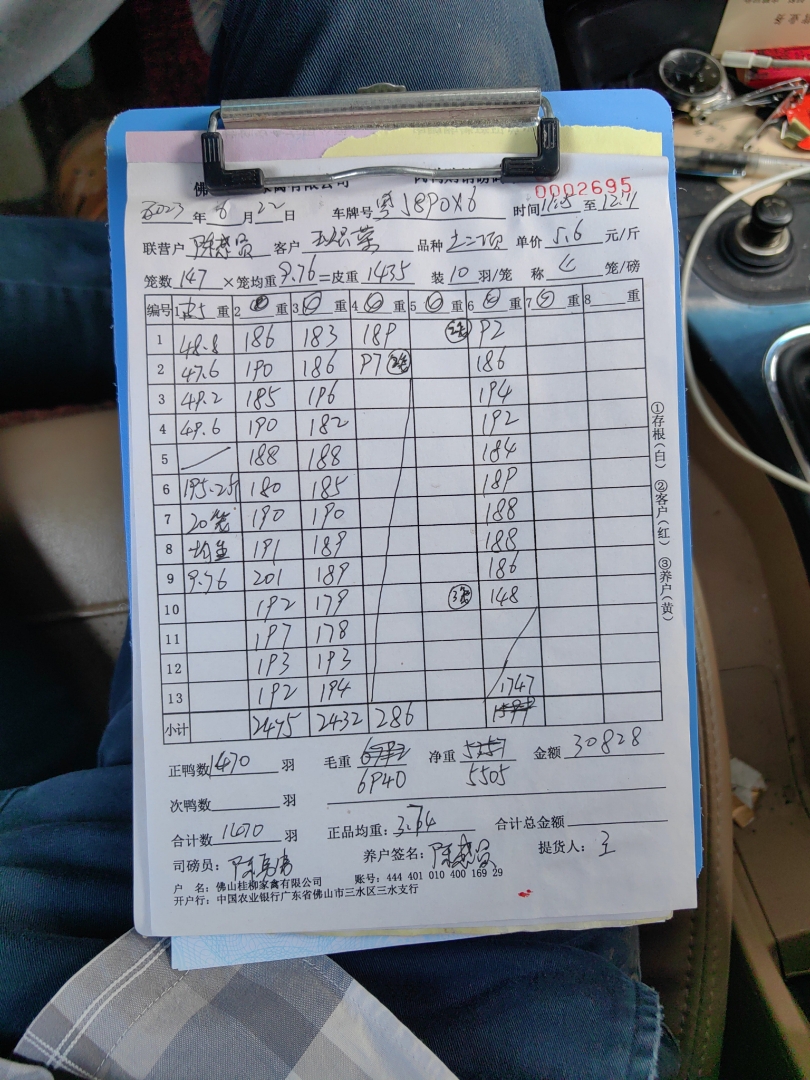 0002695
2023 年 6 月 22 日 车牌号 粤J8P0X6 时间 至
联营户 客户 品种 土二项 单价 5.6 元/斤
笼数 147 ×笼均重 9.76 =皮重 1435 装 10 羽/笼 称 笼/磅
编号 1 重 2 重 3 重 4 重 5 重 6 重 7 重 8 重
1 48.8 186 183 189 92
2 47.6 190 186 97 186
3 49.2 185 196 194
4 49.6 190 182 192
5 188 188 184
6 195.25 180 185 189
7 20笼 190 190 188
8 均重 191 189 188
9 9.76 201 189 186
10 192 179 148
11 197 178
12 193 193
13 192 194 1747
小计 2475 2432 286
正鸭数 1470 羽 毛重 净重 5357 金额 30828
6940 5505
次鸭数 羽
合计数 1470 羽 正品均重: 3.74 合计总金额
司磅员: 养户签名: 提货人: 王
户 名: 佛山桂柳家禽有限公司 账号: 444 401 010 400 169 29
开户行: 中国农业银行广东省佛山市三水区三水支行
①存根(白) ②客户(红) ③养户(黄)